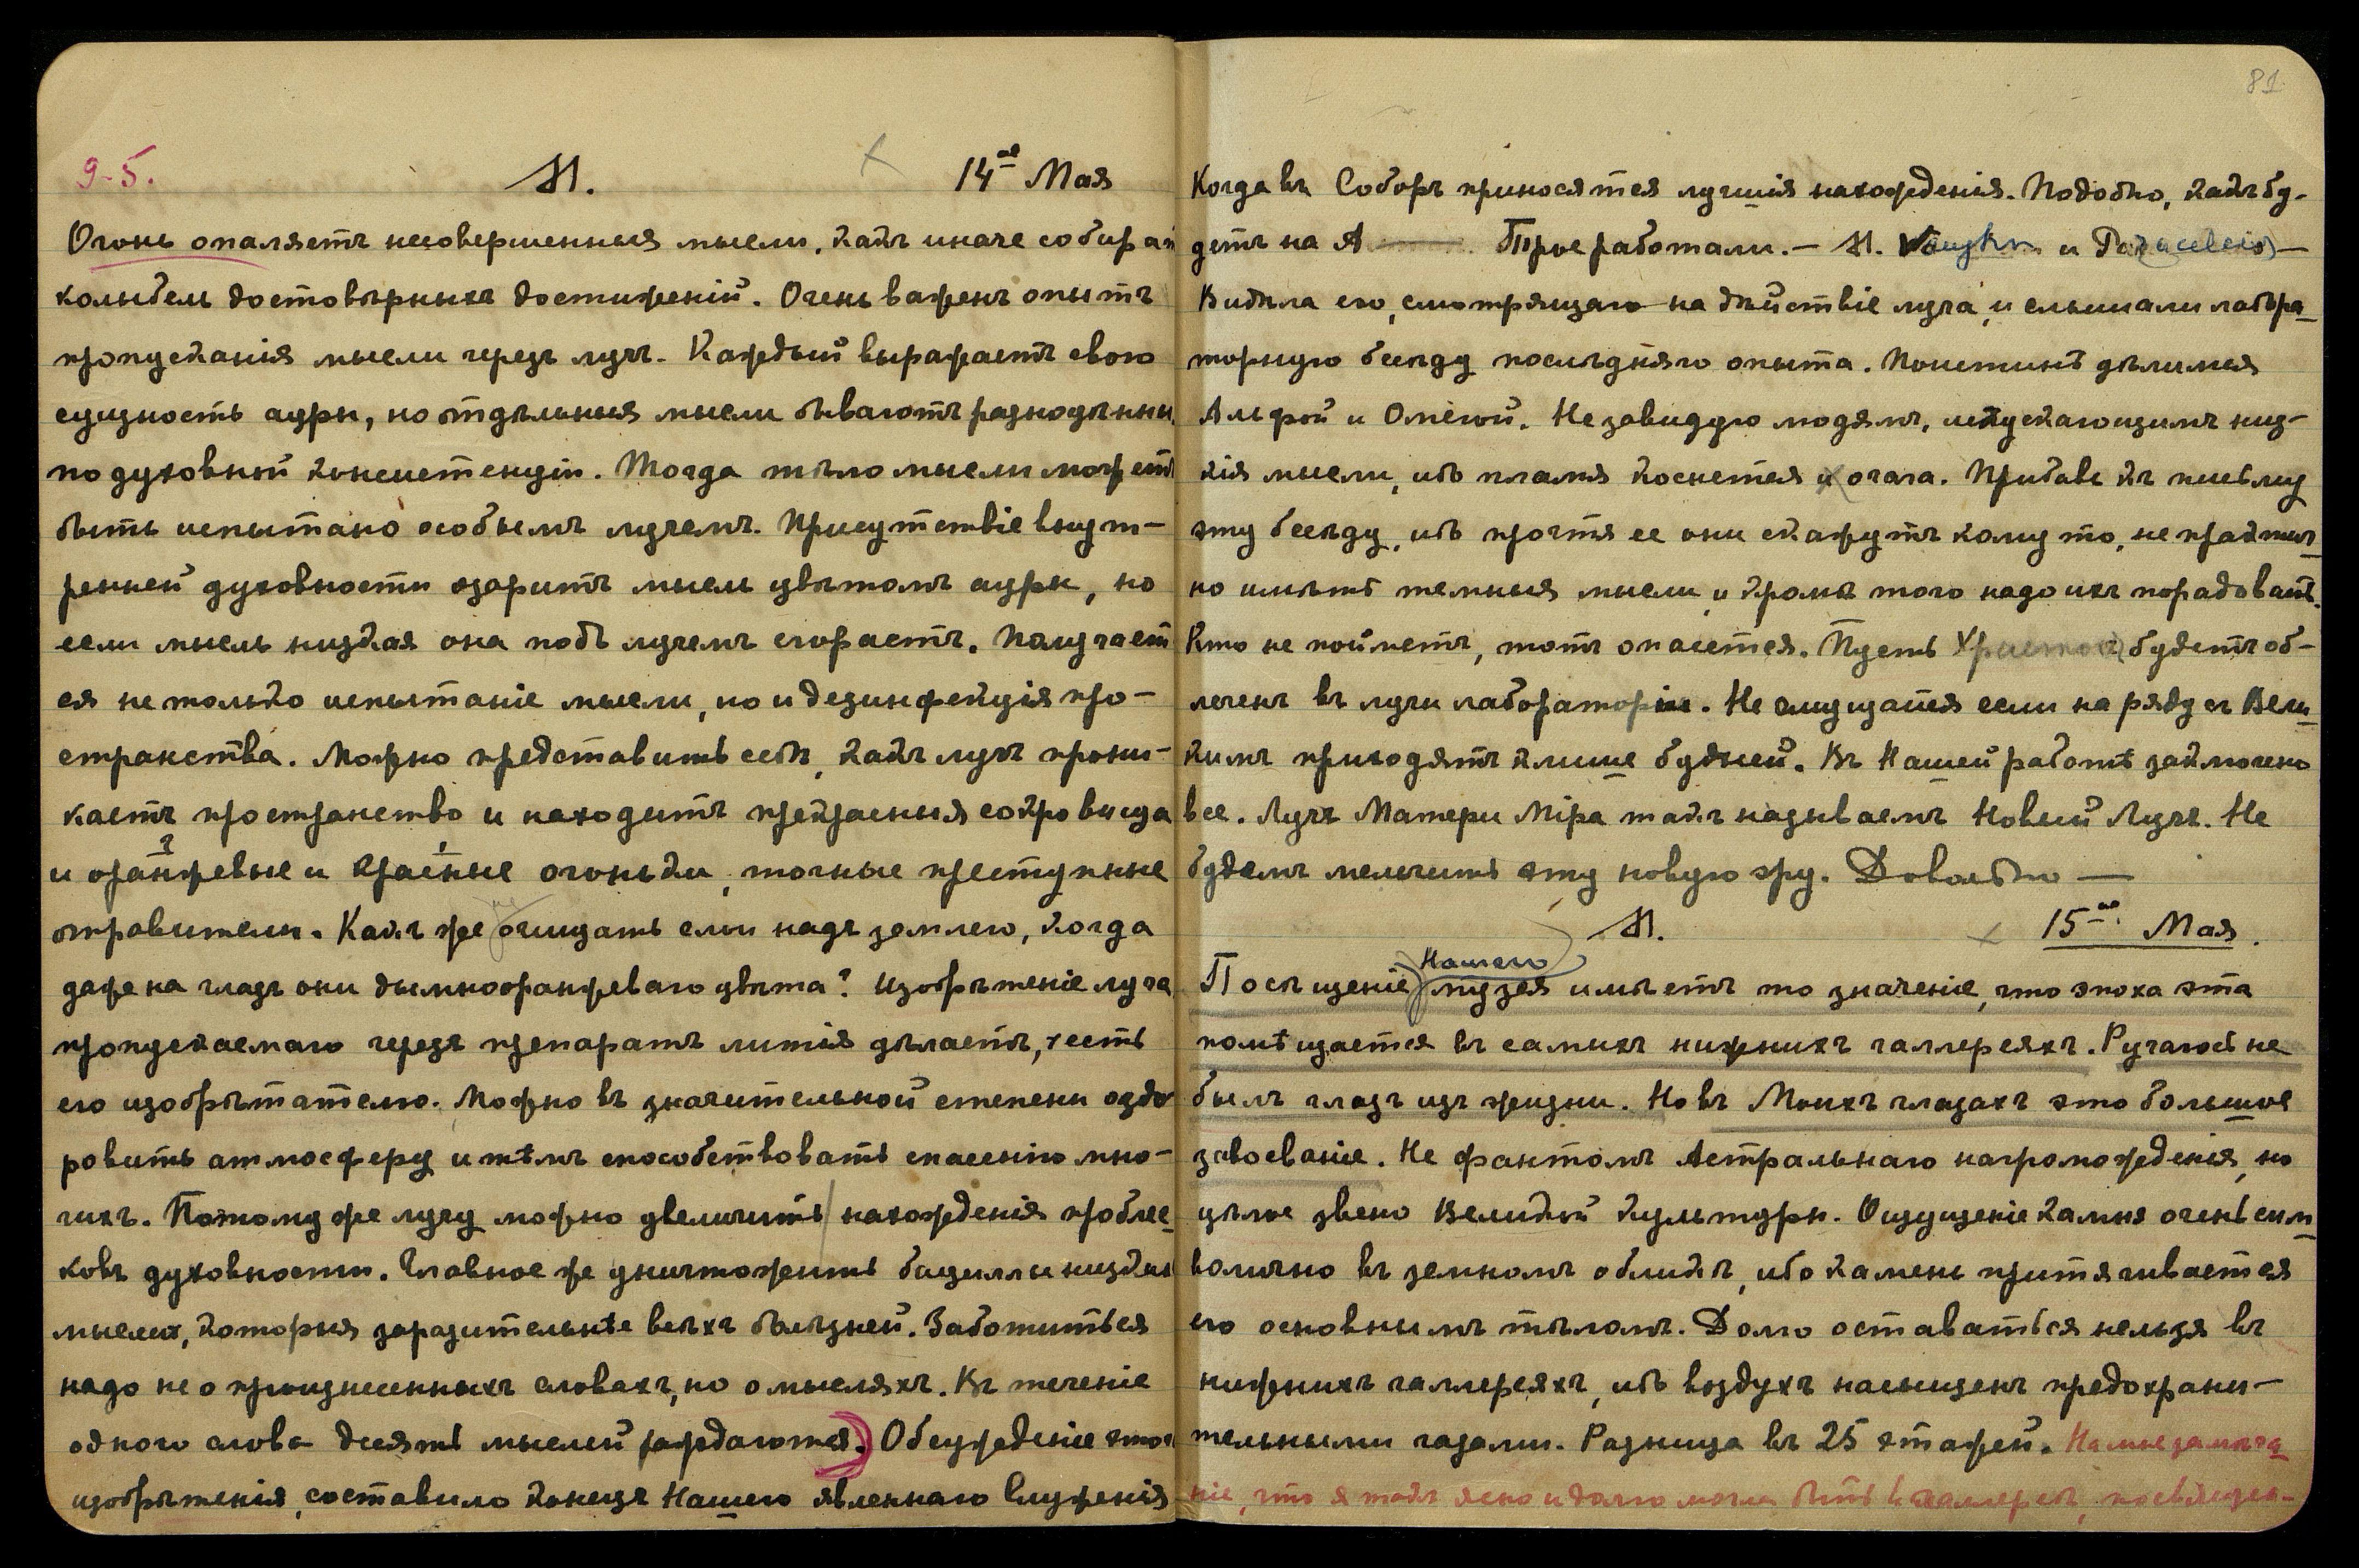 9-5. М. 14ое Мая
Огонь опаляетъ несовершенныя мысли. Какъ иначе собират
колыбель достовѣрныхъ достиженій. Очень важенъ опытъ
пропусканія мысли черезъ лучъ. Каждый выражаетъ свою
сущность ауры, но отдѣльныя мысли бываютъ разноцѣнны
по духовной консистенціи. Тогда тѣло мысли может
быть испытано особымъ лучемъ. Присутствіе внут-
ренней духовности озаритъ мысль цвѣтомъ ауры, но
если мысль низкая она подъ лучемъ сгораетъ. Получает
ся не только испытаніе мысли, но и дезинфекція про-
странства. Можно представить себѣ, какъ лучъ прони-
каетъ пространство и находитъ прекрасныя сокровища
и оранжевые и красные огоньки, точные преступные
отравители. Какъ же очищать слои надъ землею, когда
даже на глазъ они дымнооранжеваго цвѣта? Изобрѣтеніе луча
пропускаемаго черезъ препаратъ литія дѣлаетъ, честь
его изобрѣтателю. Можно въ значительной степени оздо
ровить атмосферу и тѣмъ способствовать спасенію мно-
гихъ. Поэтому же лучу можно увеличить нахожденія проблес-
ковъ духовности. Главное же уничтожить бациллы низких
мыслей, которыя заразительнѣе всѣхъ болѣзней. Заботиться
надо не о произнесенныхъ словахъ, но о мысляхъ. Въ теченіе
одного слова десять мыслей рождаются. Обсужденіе этого
изобрѣтенія, составило конецъ Нашего явленнаго служенія
81
Когда въ Соборъ приносятся лучшія нахожденія. Подобно, какъ бу-
детъ на А Трое работали. — М. и —
Видѣла его, смотрящаго на дѣйствіе луча, и слышали лабора-
торную бесѣду послѣдняго опыта. Поистинѣ дѣлимся
Альфой и Омегой. Не завидую людямъ, испускающимъ низ-
кія мысли, ибо пламя коснется и очага. Прибавь къ письму
эту бесѣду, ибо прочтя ее они скажутъ кому то, не практич-
но имѣть темныя мысли, и кромѣ того надо ихъ порадовать.
Кто не пойметъ, тотъ опасется. Пусть Христос будетъ об-
леченъ въ лучи лабораторіи. Не смущайся если на ряду съ Вели-
кимъ приходятъ клише будней. Въ Нашей работѣ заключено
все. Лучъ Матери Міра такъ называемъ Новый Лучъ. Не
будемъ мельчить эту новую эру. Довольно —
М. 15ое Мая.
Нашего
Посѣщеніе музея имѣетъ то значеніе, что эпоха эта
помѣщается въ самыхъ нижнихъ галлереяхъ. Ручаюсь не
былъ глазъ изъ жизни. Но въ Моихъ глазахъ это большое
завоеваніе. Не фантомъ Астральнаго нагроможденія, но
цѣлое звено Великой Культуры. Ощущеніе камня очень сим-
волично въ земномъ обликѣ, ибо камень притягивается
его основнымъ тѣломъ. Долго оставаться нельзя въ
нижнихъ галлереяхъ, ибо воздухъ насыщенъ предохрани-
тельными газами. Разница въ 25 этажей. На мое замѣча-
ніе, что я такъ ясно и долго могла быть въ галлереѣ, посвящен-